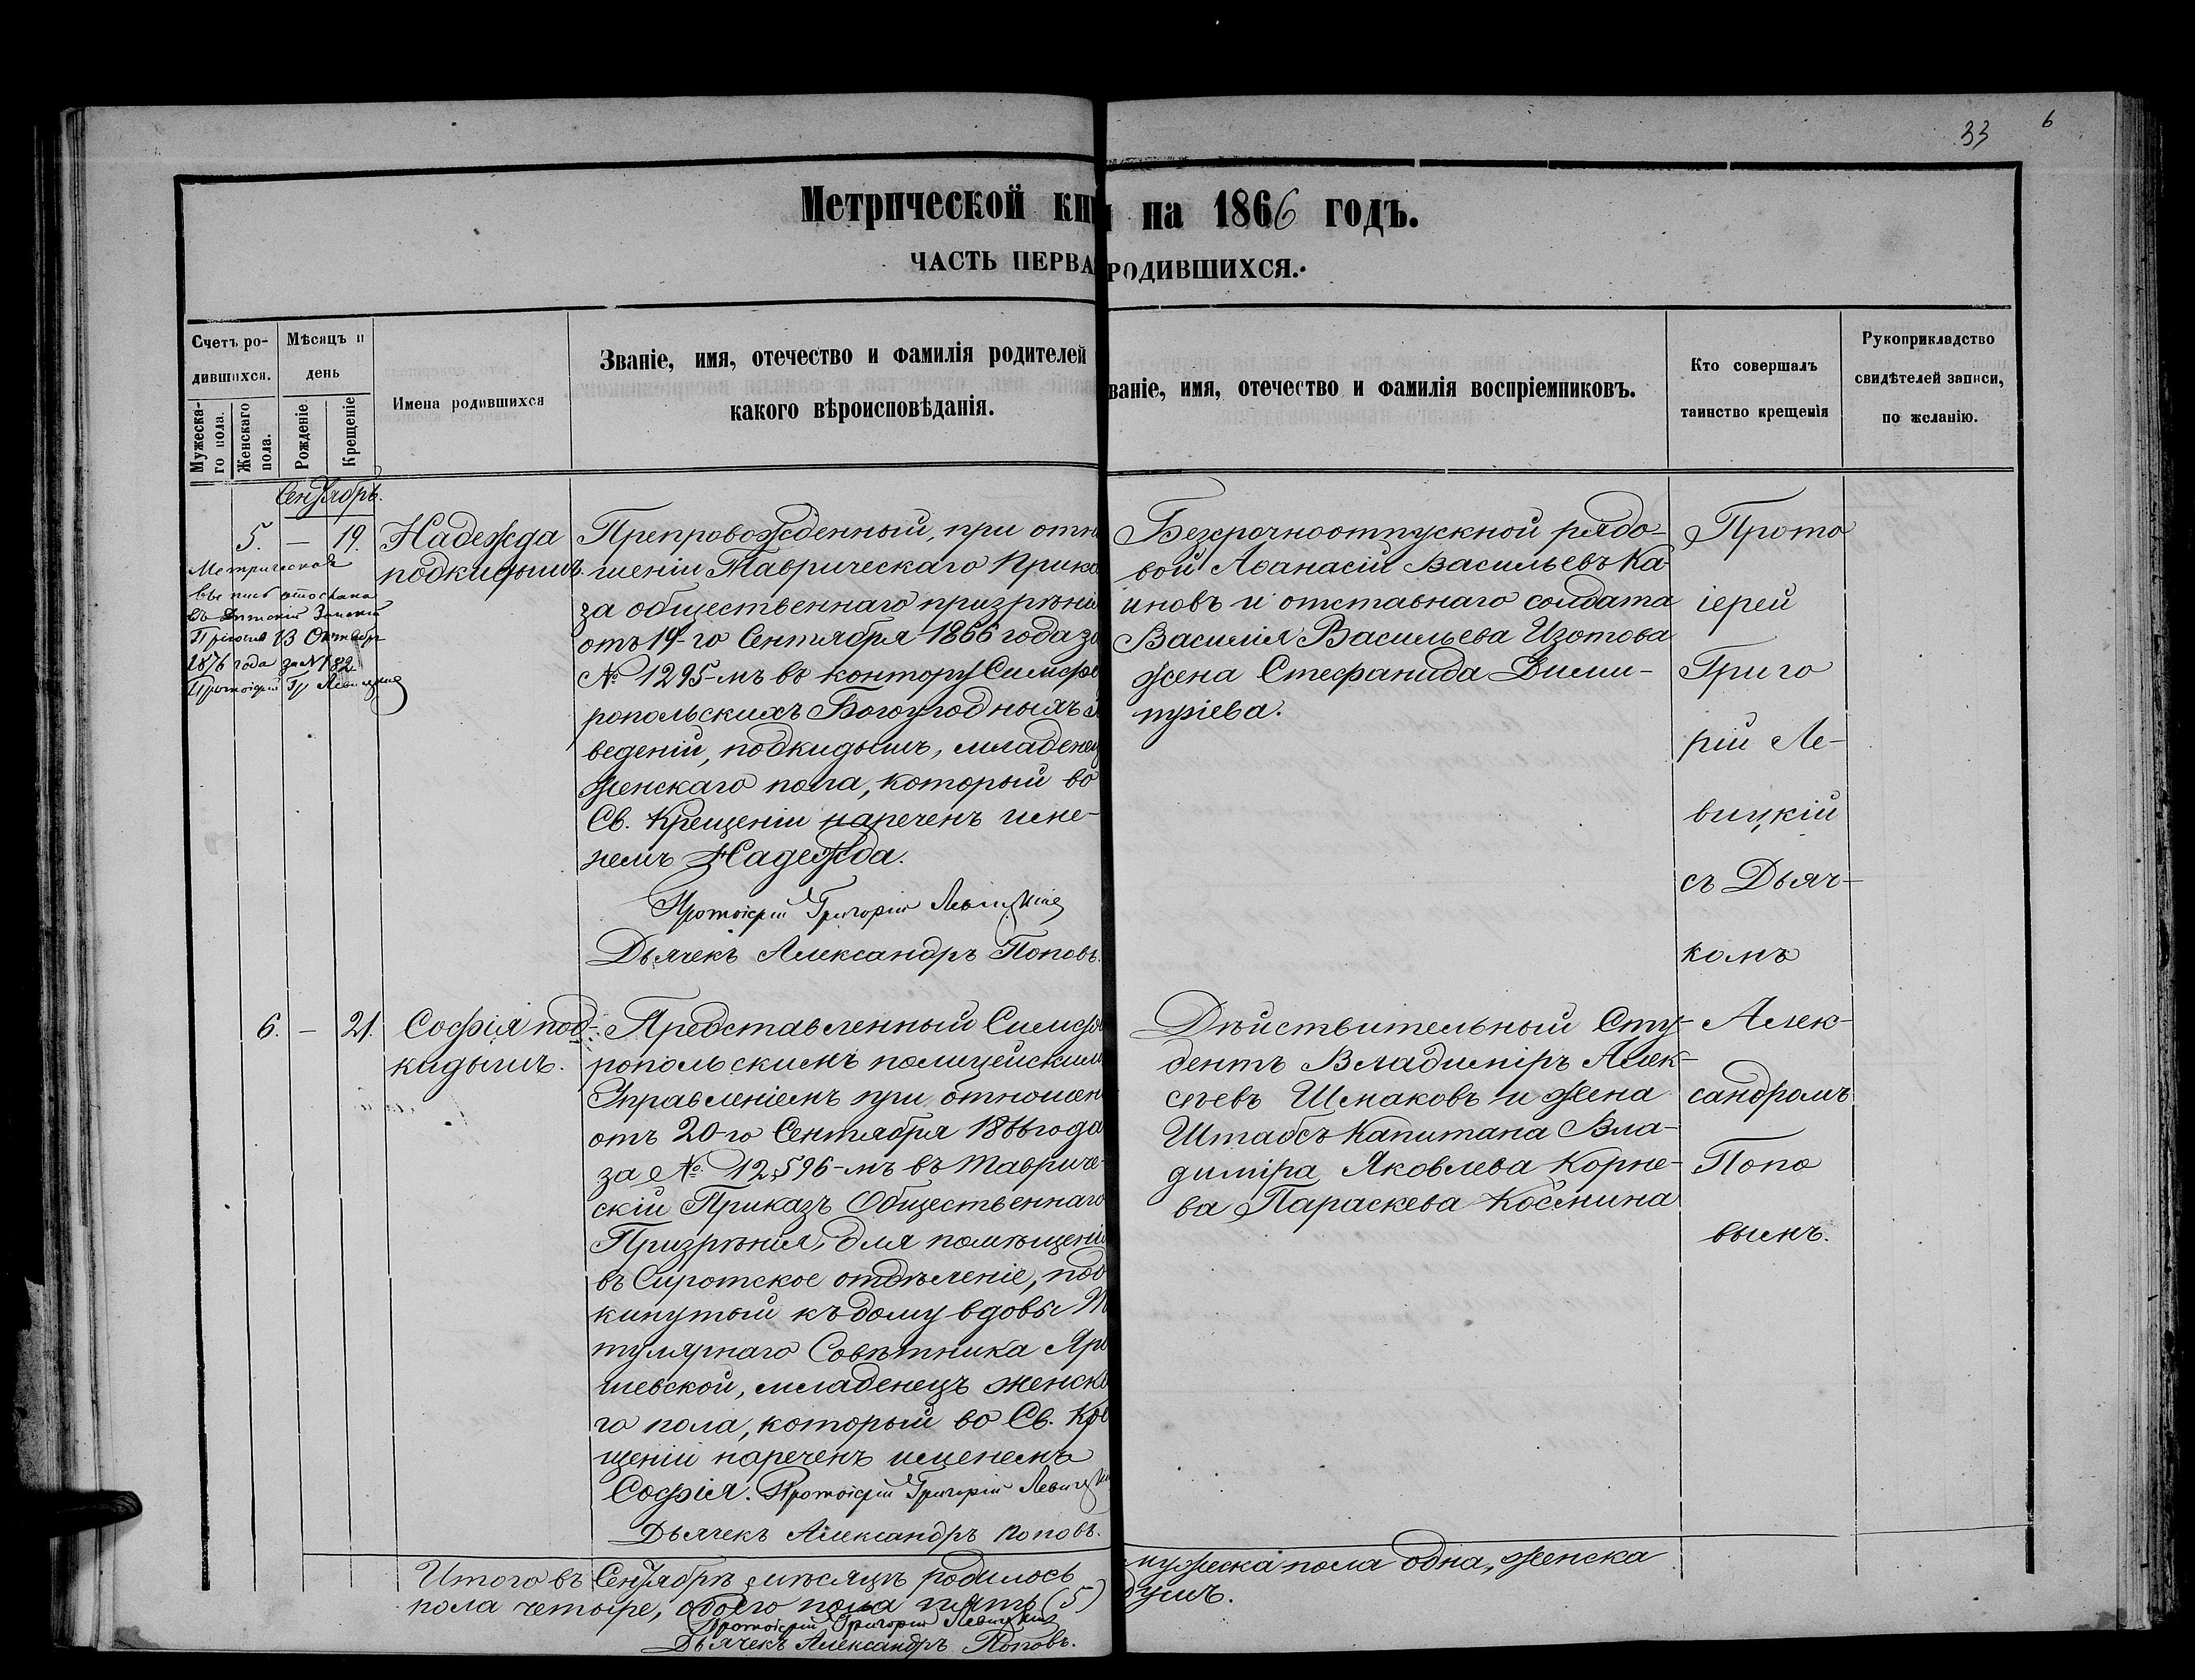 33 6
Метрической кни на 1866 годъ.
ЧАСТЬ ПЕРВА РОДИВШИХСЯ.
Счетъ ро-
дившихся.
Мужеска-
го пола.
Женскаго
пола.
Мѣсяцъ и
день
Рожденіе
Крещеніе
Имена родившихся
Званіе, имя, отечество и фамилія родителей
какого вѣроисповѣданія.
ваніе, имя, отечество и фамилія воспріемниковъ.
Кто совершалъ
таинство крещенія
Рукоприкладство
свидѣтелей записи,
по желанію.
Сентябрь.
5. — 19.
Метрическая
въ
13 Октября
1876 года за № 182
Протоіерей Гр Левицкій
Надежда
подкидышъ.
Препровожденный, при отно
шеніи Таврическаго Прика
за общественнаго призрѣнія
отъ 19-го Сентября 1866 года за
№ 1295-мъ въ контору Симфе
ропольскихъ Богоугодныхъ за
веденій, подкидышъ, младенец
женскаго пола, который во
Св. Крещеніи нареченъ име-
немъ Надежда.
Протоіерей Григорій Левицкій
Дьячекъ Александръ Поповъ.
Безсрочноотпускной рядо-
вой Аѳанасій Васильевъ Ка-
иновъ и отставнаго солдата
Василія Васильева Изотова
жена Стефанида Дими-
тріева.
Прото
іерей
Григо
рій Ле-
вицкій
съ Дьяч-
комъ
Алек-
сандромъ
Попо
вымъ.
6. — 21.
Софія под-
кидышъ.
Представленный Симфе
ропольскимъ полицейскимъ
Управленіемъ при отношен
отъ 20-го Сентября 1866 года
за № 12,596-мъ въ Тавриче-
скій Приказъ Общественнаго
Призрѣнія, для помѣщенія
въ Сиротское отдѣленіе, под
кинутый къ дому вдовы Ти
тулярнаго Совѣтника Яро
шевской, младенецъ женска
го пола, который во Св. Кре
щеніи нареченъ именемъ
Софія. Протоіерей Григорій Левицкій
Дьячекъ Александръ Поповъ.
Дѣйствительный Сту-
дентъ Владиміръ Алек-
сѣевъ Шмаковъ и жена
Штабсъ Капитана Вла-
диміра Яковлева Корне-
ва Параскева Космина
Итого въ Сентябрѣ мѣсяцѣ родилось мужеска пола одна, женска
пола четыре, обоего пола пять (5) душъ.
Протоіерей Григорій Левицкій
Дьячекъ Александръ Поповъ.